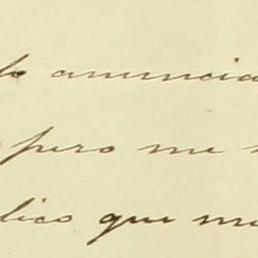 lo anuncia
pero me
lico que me